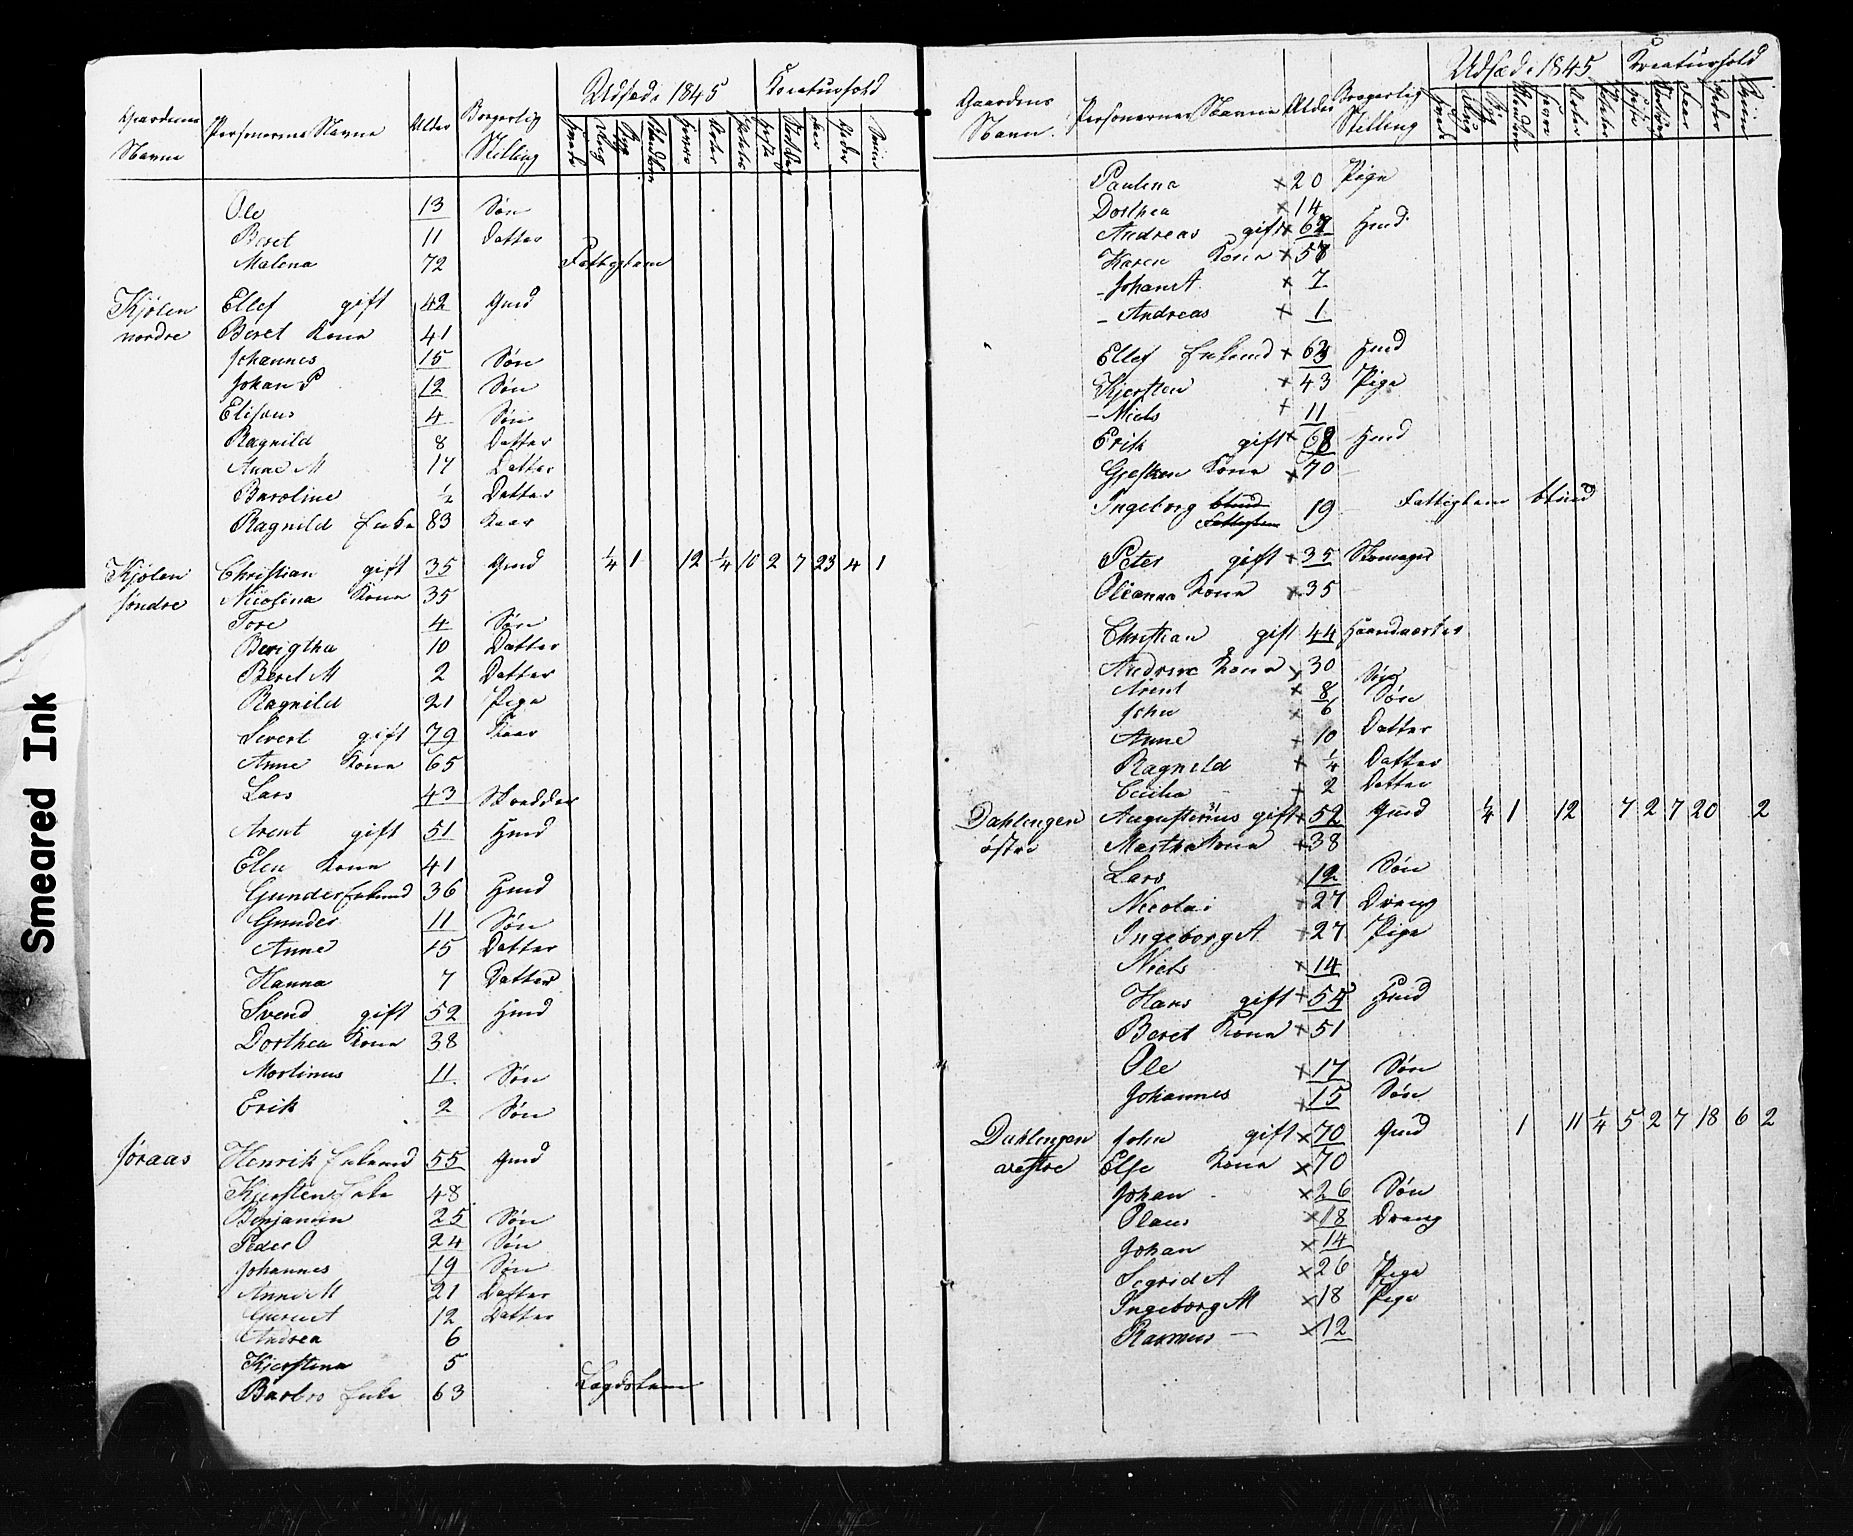 Smeared Ink
Gaardenes Navne Personernes Navne Alder Borgerlig Stilling Udsæd i 1845 Kreaturhold
Hvede Rug Byg Blandkorn Havre Erter Poteter Heste Storfæ Faar Geder Sviin
Ole 13 Søn
Beret 11 Datter
Malena 72 Fattiglem
Kjølen nordre Ellef gift 42 Gmd
Beret Kone 41
Johannes 15 Søn
Johan P 12 Søn
Elisæus 4 Søn
Ragnild 8 Datter
Anne M 17 Datter
Baroline ½ Datter
Ragnild Enke 83 Kaar
Kjølen søndre Christian gift 35 Gmd ¼ 1 12 ¼ 10 2 7 23 4 1
Nicolina Kone 35
Tore 4 Søn
Berigtha 10 Datter
Beret M 2 Datter
Ragnild 21 Pige
Sivert gift 79 Kaar
Anne Kone 65
Lars 43 Skredder
Arent gift 51 Hmd
Elen Kone 41
Gunder Enkemd 36 Hmd
Gunder 11 Søn
Anne 15 Datter
Hanna 7 Datter
Svend gift 52 Hmd
Dorthea Kone 38
Mortinus 11 Søn
Erik 2 Søn
Føraas Henrik Enkemd 55 Gmd
Kjersten Enke 48
Benjamin 25 Søn
Peder O 24 Søn
Johannes 19 Søn
Anne M 21 Datter
12 Datter
Andrea 6
Kjerstina 5
Barbro Enke 63 Lægdslem
Gaardenes Navn Personernes Navne Alder Borgerlig Stilling Udsæd i 1845 Kreaturhold
Hvede Rug Byg Blandkorn Havre Erter Poteter Heste Storfæ Faar Geder Sviin
Paulena × 20 Pige
Dorthea × 14
Andreas gift × 67 Hmd
Karen Kone × 57
- Johan A × 7
- Andreas × 1
Ellef Enkemd × 63 Hmd
Kjersten × 43 Pige
- Niels + 11
Erik gift × 68 Hmd
Kone × 70
Ingeborg blind Fattiglem 19 Fattiglem blind
Peter gift × 35 Skomager
Oleanna Kone × 35
Christian gift 44 Haandverker
Andrine Kone × 30
Arent × 8 Søn
John × 6 Søn
Anne × 10 Datter
Ragnild × ¼ Datter
Cecilia × 2 Datter
Dahlingen østre Augustinus gift × 52 Gmd ¼ 1 12 7 2 7 20 2
Martha Kone × 38
Lars × 12 Søn
Nicolai × 27 Dreng
Ingeborg A × 27 Pige
Niels × 14
Hans gift × 54 Hmd
Beret Kone × 51
Ole × 17 Søn
Johannes × 15 Søn
Dahlingen vestre John gift × 70 Gmd 1 11 ¼ 5 2 7 18 6 2
Else Kone × 70
Johan × 26 Søn
Olaus × 18 Dreng
Johan × 14
Segrid A × 26 Pige
Ingeborg M × 18 Pige
Rasmus × 12